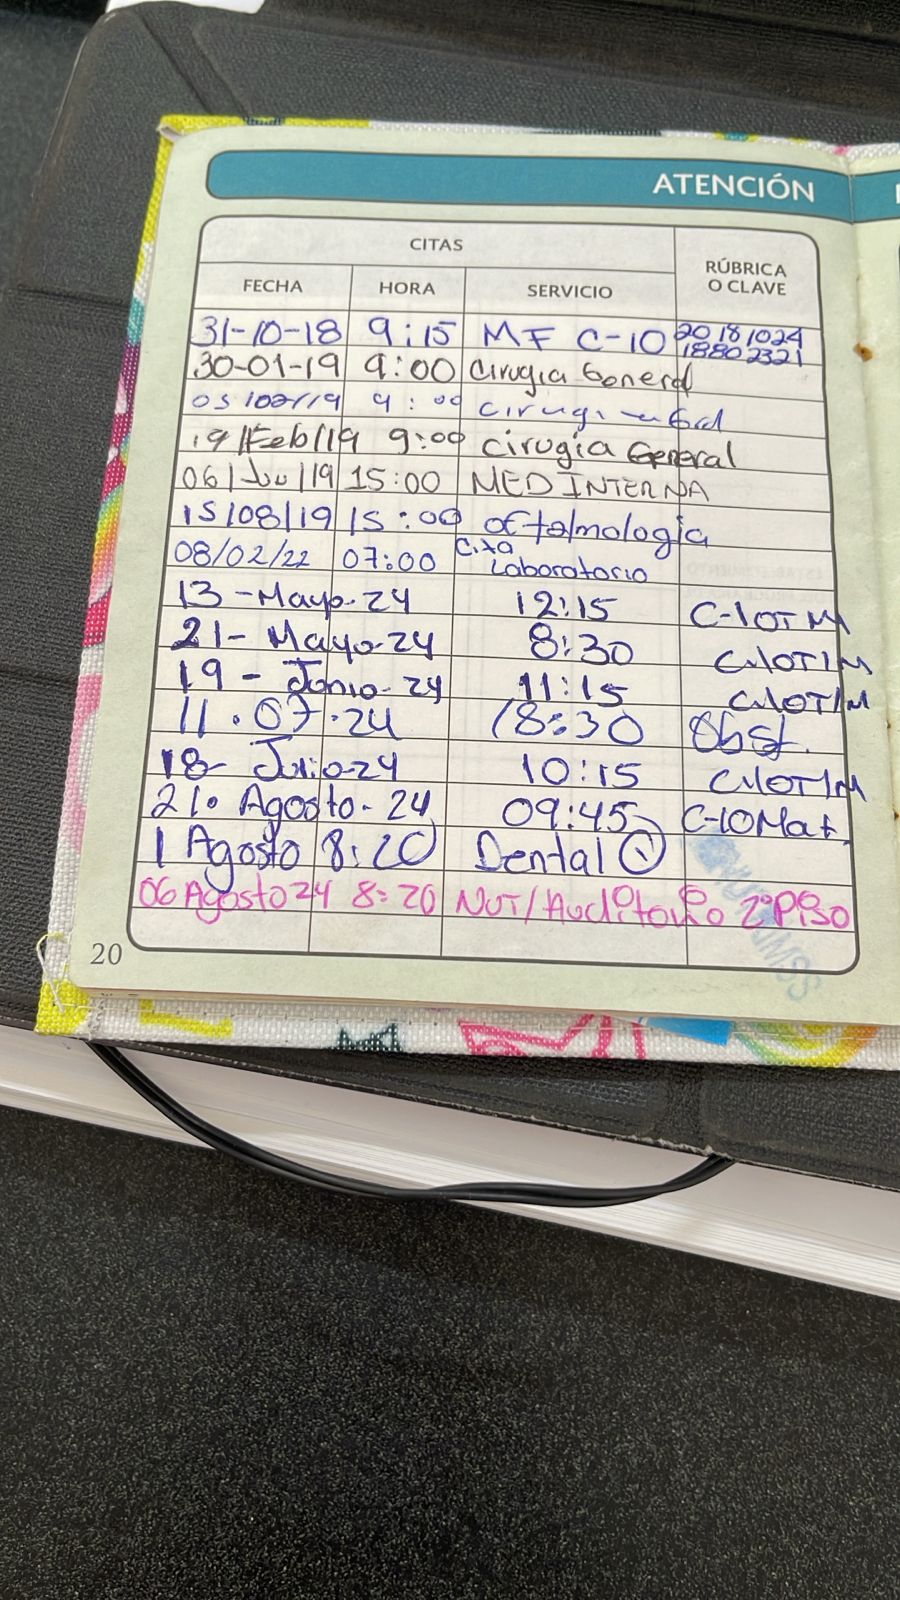 ATENCIÓN
CITAS
FECHA HORA SERVICIO RÚBRICA O CLAVE
31-10-18 9:15 MF C-10 20181024 18802321
30-01-19 9:00 Cirugia General
05/02/19 9:00 cirugi
19/Feb/19 9:00 Cirugia General
06/Ju/19 15:00 MED INTERNA
15/08/19 15:00 oftalmologia
08/02/22 07:00 Cita Laboratorio
13-Mayo-24 12:15 C-10TM
21-Mayo-24 8:30 C-10T/M
19-Junio-24 11:15 C-10T/M
11.07.24 18:30 Obst.
18-Julio-24 10:15 C-10T/M
21. Agosto-24 09:45 C-10Mat
1 Agosto 8:20 Dental
06 Agosto 24 8:20 NUT/Auditorio 2°Piso
20